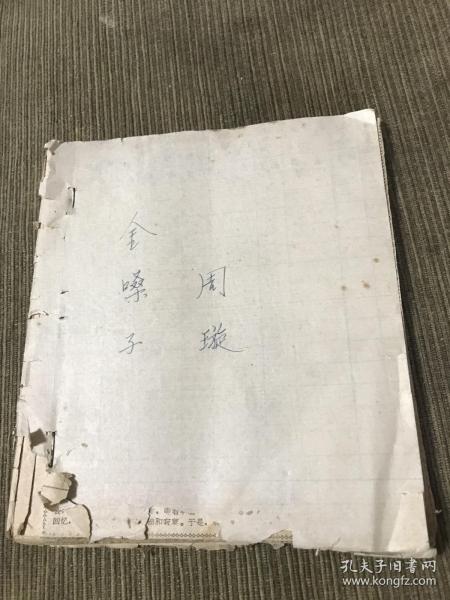 金嗓子
周璇
回忆,
和衰草。于是,
孔夫子旧书网
www.kongfz.com